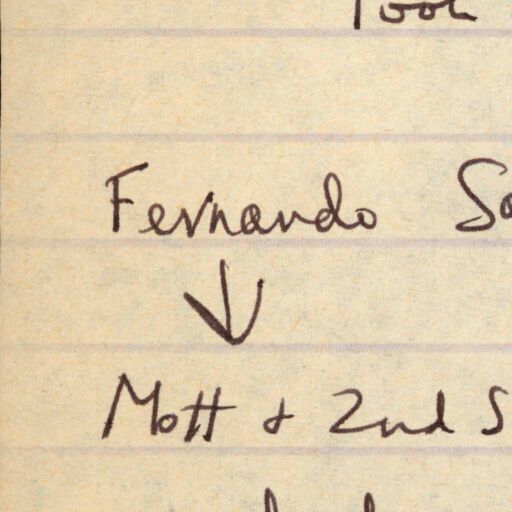 Took
Fernando So
↓
Mott & 2nd S